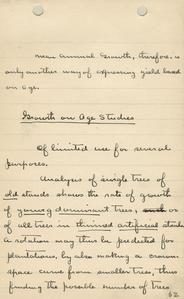 mean Annual Growth, therefore, is
only another way of expressing yield based
on age.
Growth on Age Studies
Of limited use for several
purposes.
Analyses of single trees of
old stands shows the rate of growth
of young dominant trees, or
of all trees in thinned artificial stands
A rotation may thus be predicted for
plantations, by also making a crown
space curve from smaller trees, thus
finding the possible number of trees